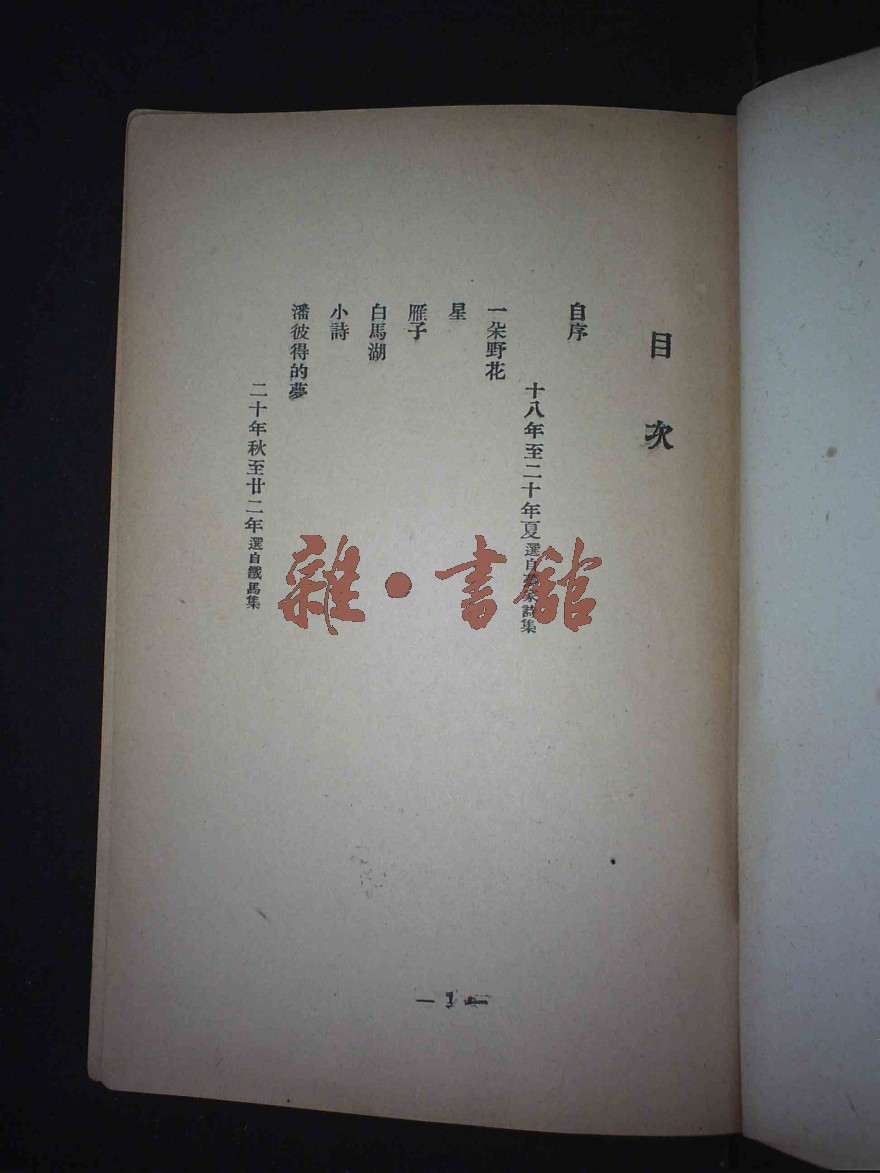 目次
自序
十八年至二十年夏 選自夢家詩集
一朵野花
星
雁子
白馬湖
小詩
潘彼得的夢
二十年秋至廿二年 選自鐵馬集
雜·書館
— 1 —